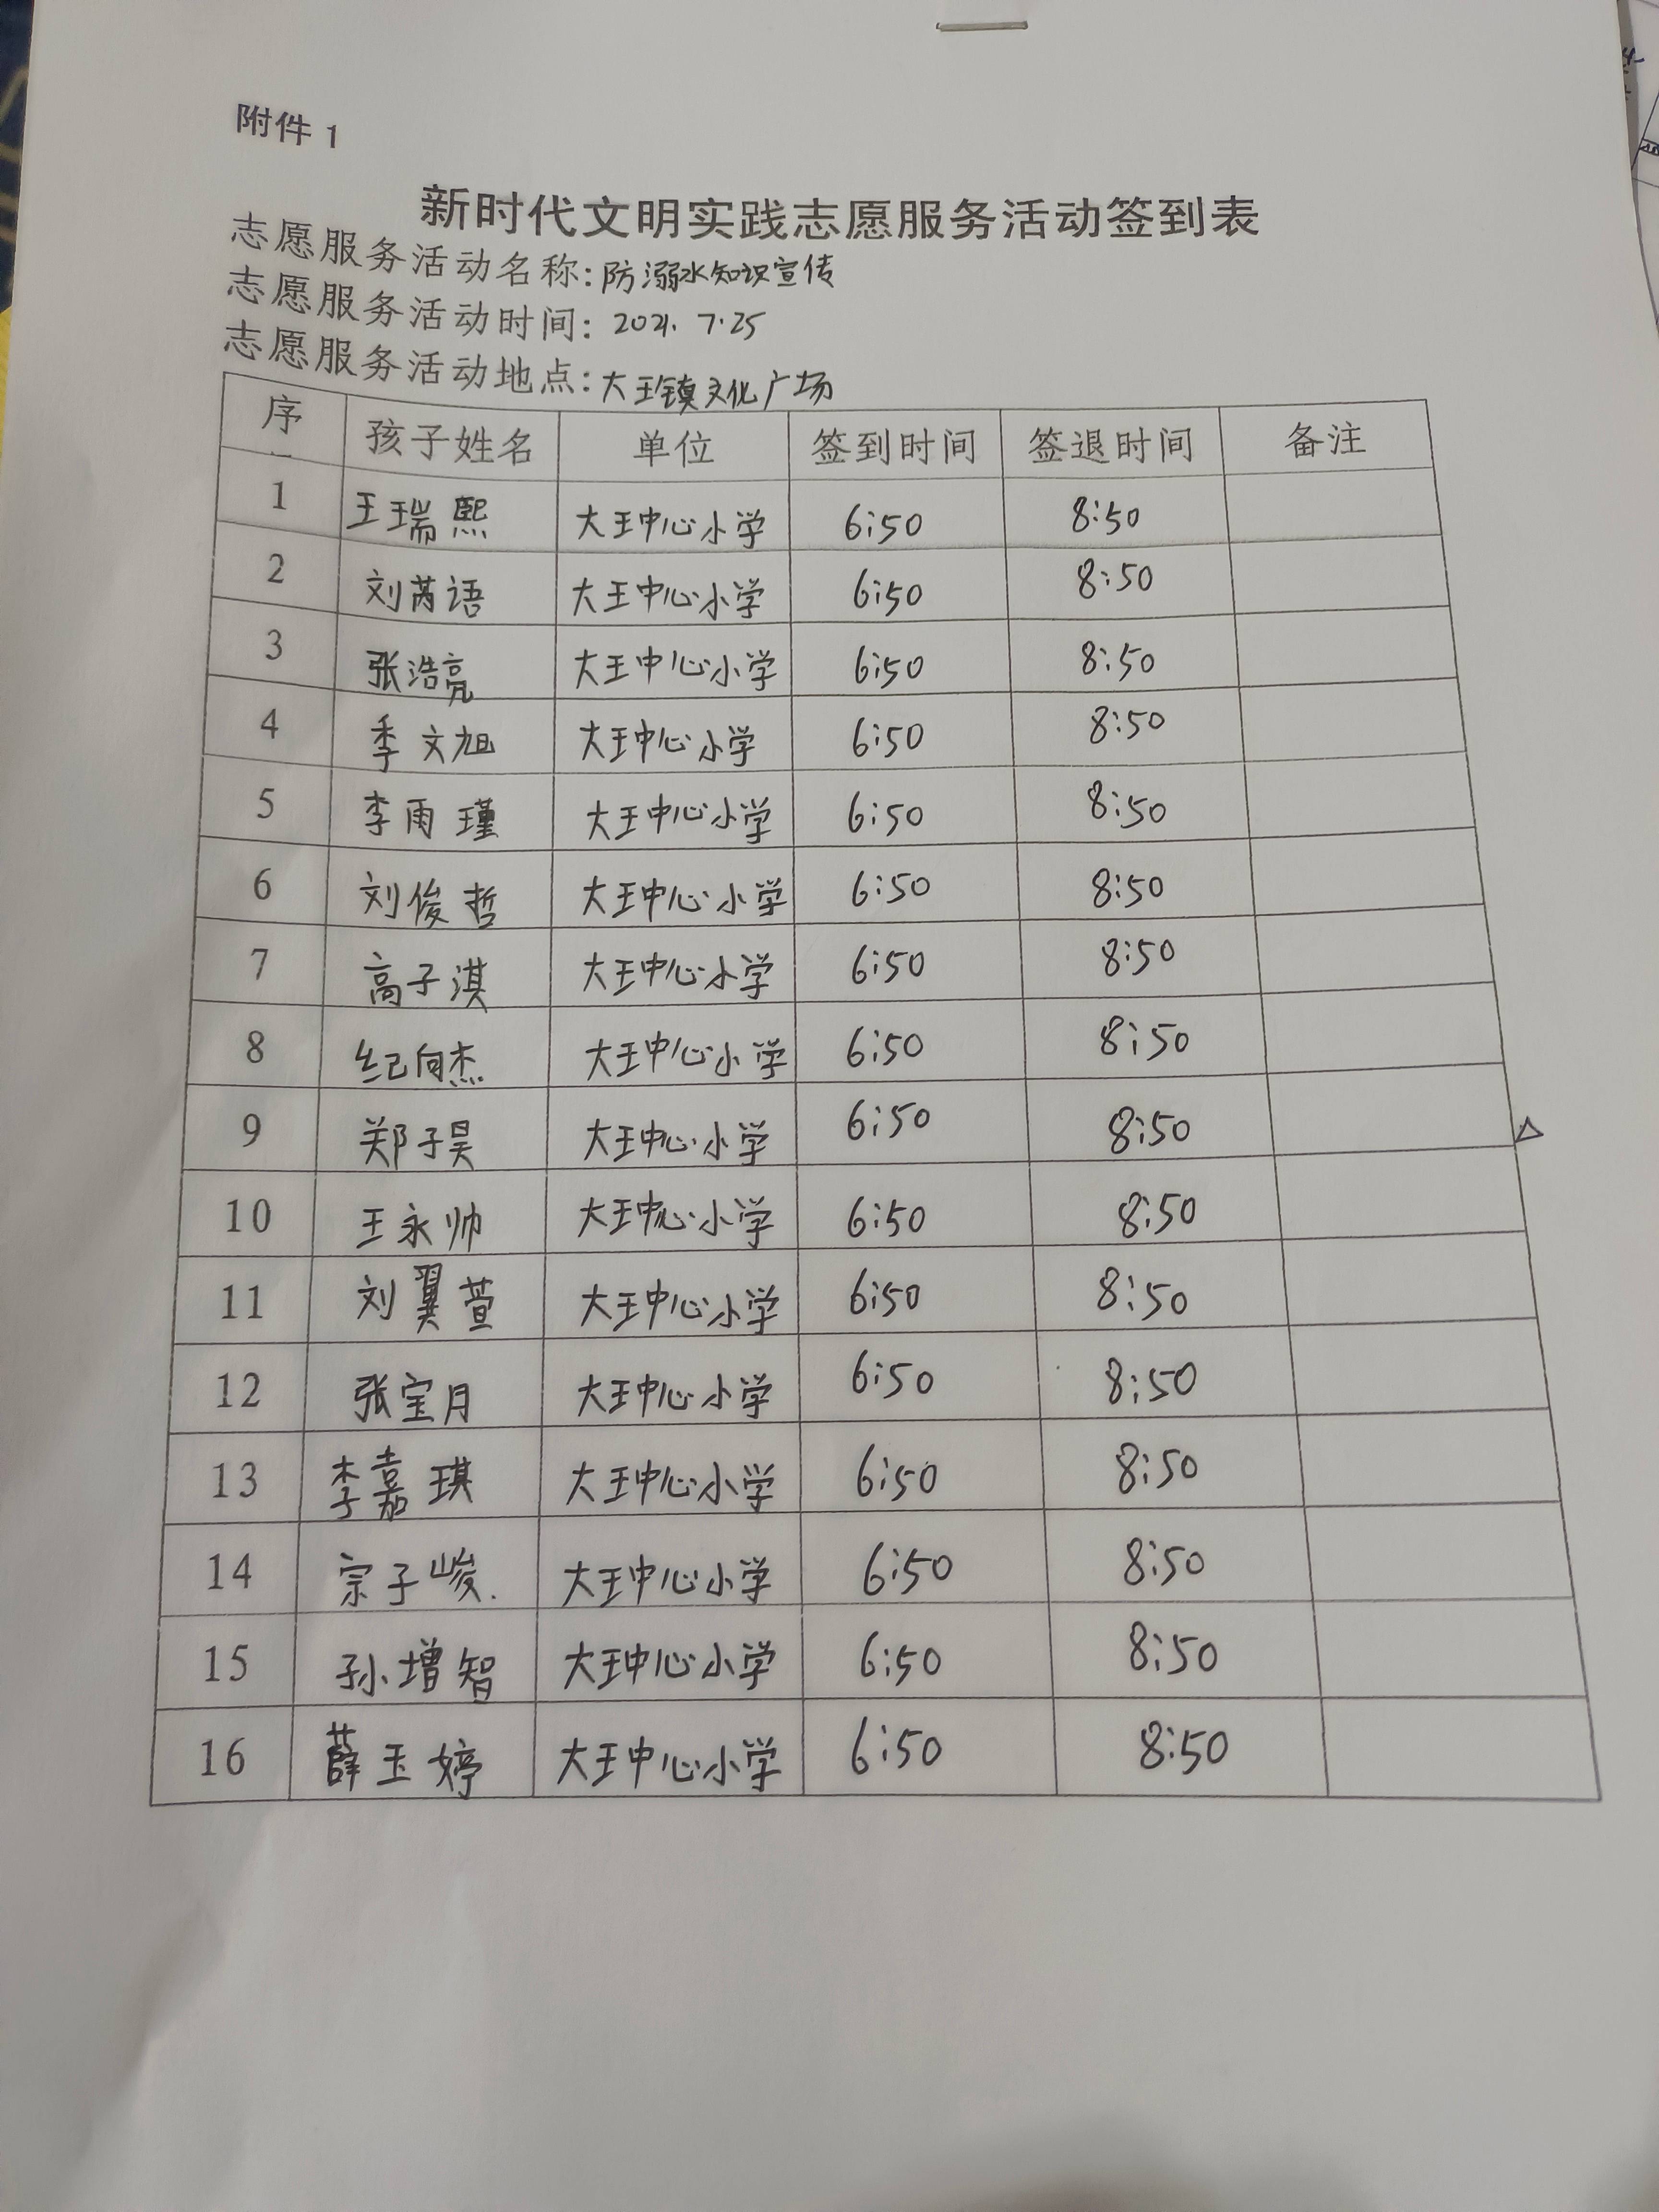 附件 1
新时代文明实践志愿服务活动签到表
志愿服务活动名称:防溺水知识宣传
志愿服务活动时间: 2021. 7.25
志愿服务活动地点:大王镇文化广场
序 孩子姓名 单位 签到时间 签退时间 备注
1 王瑞熙 大王中心小学 6:50 8:50
2 刘芮语 大王中心小学 6:50 8:50
3 张浩亮 大王中心小学 6:50 8:50
4 季文旭 大王中心小学 6:50 8:50
5 李雨瑾 大王中心小学 6:50 8:50
6 刘俊哲 大王中心小学 6:50 8:50
7 高子淇 大王中心小学 6:50 8:50
8 纪向杰 大王中心小学 6:50 8:50
9 郑子昊 大王中心小学 6:50 8:50
10 王永帅 大王中心小学 6:50 8:50
11 刘翼萱 大王中心小学 6:50 8:50
12 张宝月 大王中心小学 6:50 8:50
13 李嘉琪 大王中心小学 6:50 8:50
14 宗子峻. 大王中心小学 6:50 8:50
15 孙增智 大王中心小学 6:50 8:50
16 薛玉婷 大王中心小学 6:50 8:50